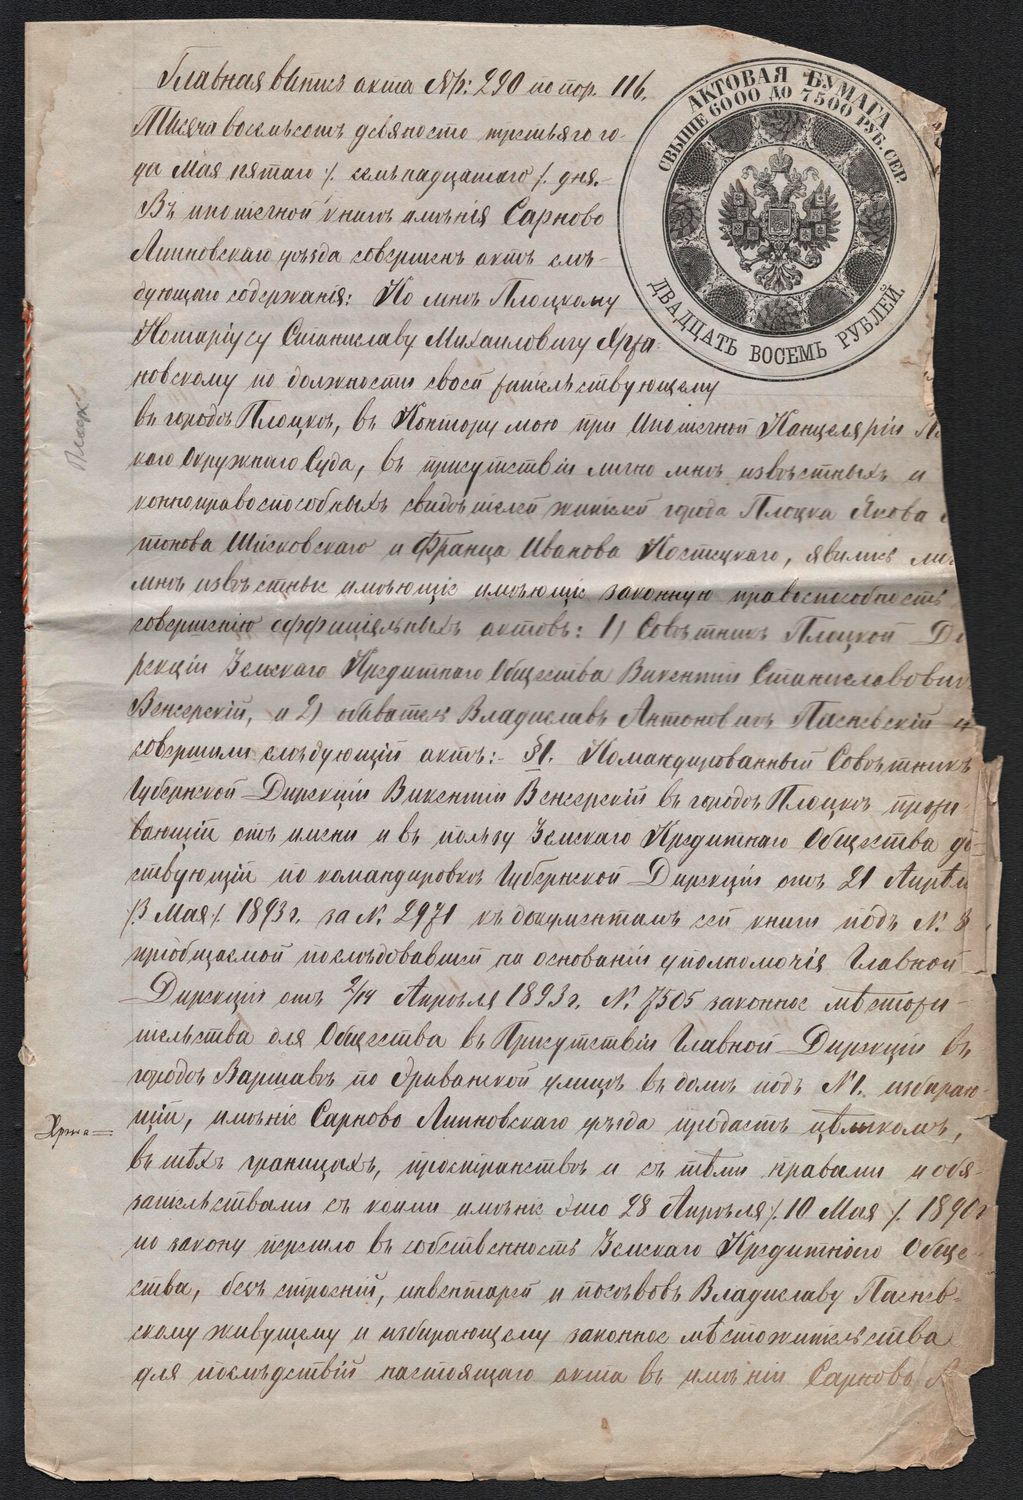 Главная выпись акта Нр: 290 по пор. 116.
АКТОВАЯ БУМАГА
СВЫШЕ 6000 ДО 7500 РУБ. СЕР.
ДВАДЦАТЬ ВОСЕМЬ РУБЛЕЙ.
Тысяча восемьсотъ девяносто третьяго го-
да Мая пятаго /. семьнадцатаго /. дня.-
Въ ипотечной книгѣ имѣнія Сарново
Липновскаго уѣзда совершенъ актъ слѣ-
дующаго содержанія: Ко мнѣ Плоцкому
Нотаріусу Станиславу Михаиловичу Хржа-
новскому по должности своей жительствующему
въ городѣ Плоцкѣ, въ Контору мою при Ипотечной Канцеляріи
каго Окружнаго Суда, въ присутствіи лично мнѣ извѣстныхъ и
конноправоспособныхъ свидѣтелей жителей города Плоцка Якова
тонова и Франца Иванова Костецкаго, явились
мнѣ извѣстные имѣющіе имѣющіе законную правоспособность
совершенію оффиціяльныхъ актовъ: 1) Совѣтникъ Плоцкой Ди
рекціи Земскаго Кредитнаго Общества Викентій Станиславович
Венсерскій, и 2) обыватель Владиславъ Антоновичъ Пасневскій и
совершили слѣдующій актъ:- §1. Командированный Совѣтникъ
Губернской Дирекціи Викентій Венсерскій въ городѣ Плоцкѣ прожи-
вающій отъ имени и въ пользу Земскаго Кредитнаго Общества дѣ-
ствующій по командировкѣ Губернской Дирекціи отъ 21 Апрѣл
/3 Мая/. 1893 г. за N. 2971 къ документамъ сей книги подъ N. 8
пріобщаемой послѣдовавшей на основаніи уполномочія Главной
Дирекціи отъ 2/14 Апрѣля 1893 г. N. 7505 законное мѣстожи-
тельства для Общества въ Присутствіи Главной Дирекціи въ
городѣ Варшавѣ по Эриванской улицѣ въ домѣ подъ N1. избираю-
щій, имѣніе Сарново Липновскаго уѣзда продаетъ цѣликомъ,
въ тѣхъ границахъ, пространствѣ и съ тѣми правами и обя-
зательствами съ коими имѣніе это 28 Апрѣля /. 10 Мая /. 1890 г
по закону перешло въ собственность Земскаго Кредитнаго Обще-
ства, безъ строеній, инвентарей и посѣвовъ Владиславу Паснев-
скому живущему и избирающему законное мѣстожительства
для послѣдствій настоящаго акта въ имѣніи Сарновѣ